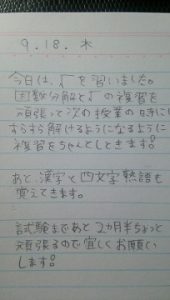 9.18.木
今日は、√を習いました。
因数分解と√の復習を
頑張って次の授業の時には
すらすら解けるようになるように
復習をちゃんとしときます。
あと、漢字と四文字熟語も
覚えてきます。
試験まであと2ヵ月半ちょっと
頑張るので宜しくお願い
します。